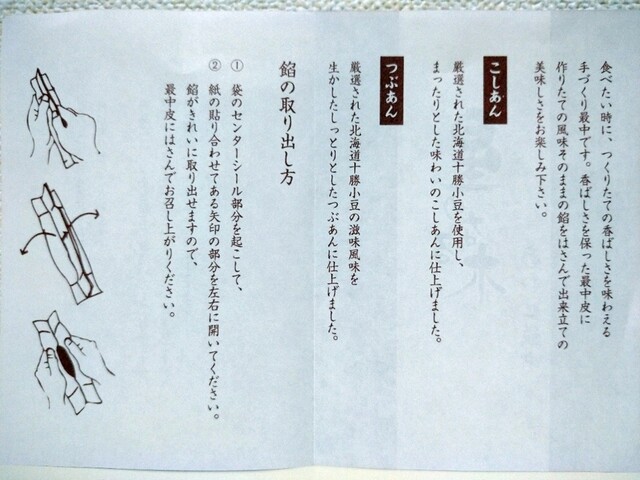 食べたい時に、つくりたての香ばしさを味わえる
手づくり最中です。香ばしさを保った最中皮に
作りたての風味そのままの餡をはさんで出来立ての
美味しさをお楽しみ下さい。
こしあん
厳選された北海道十勝小豆を使用し、
まったりとした味わいのこしあんに仕上げました。
つぶあん
厳選された北海道十勝小豆の滋味風味を
生かしたしっとりとしたつぶあんに仕上げました。
餡の取り出し方
① 袋のセンターシール部分を起こして、
② 紙の貼り合わせてある矢印の部分を左右に開いてください。
餡がきれいに取り出せますので、
最中皮にはさんでお召し上がりください。